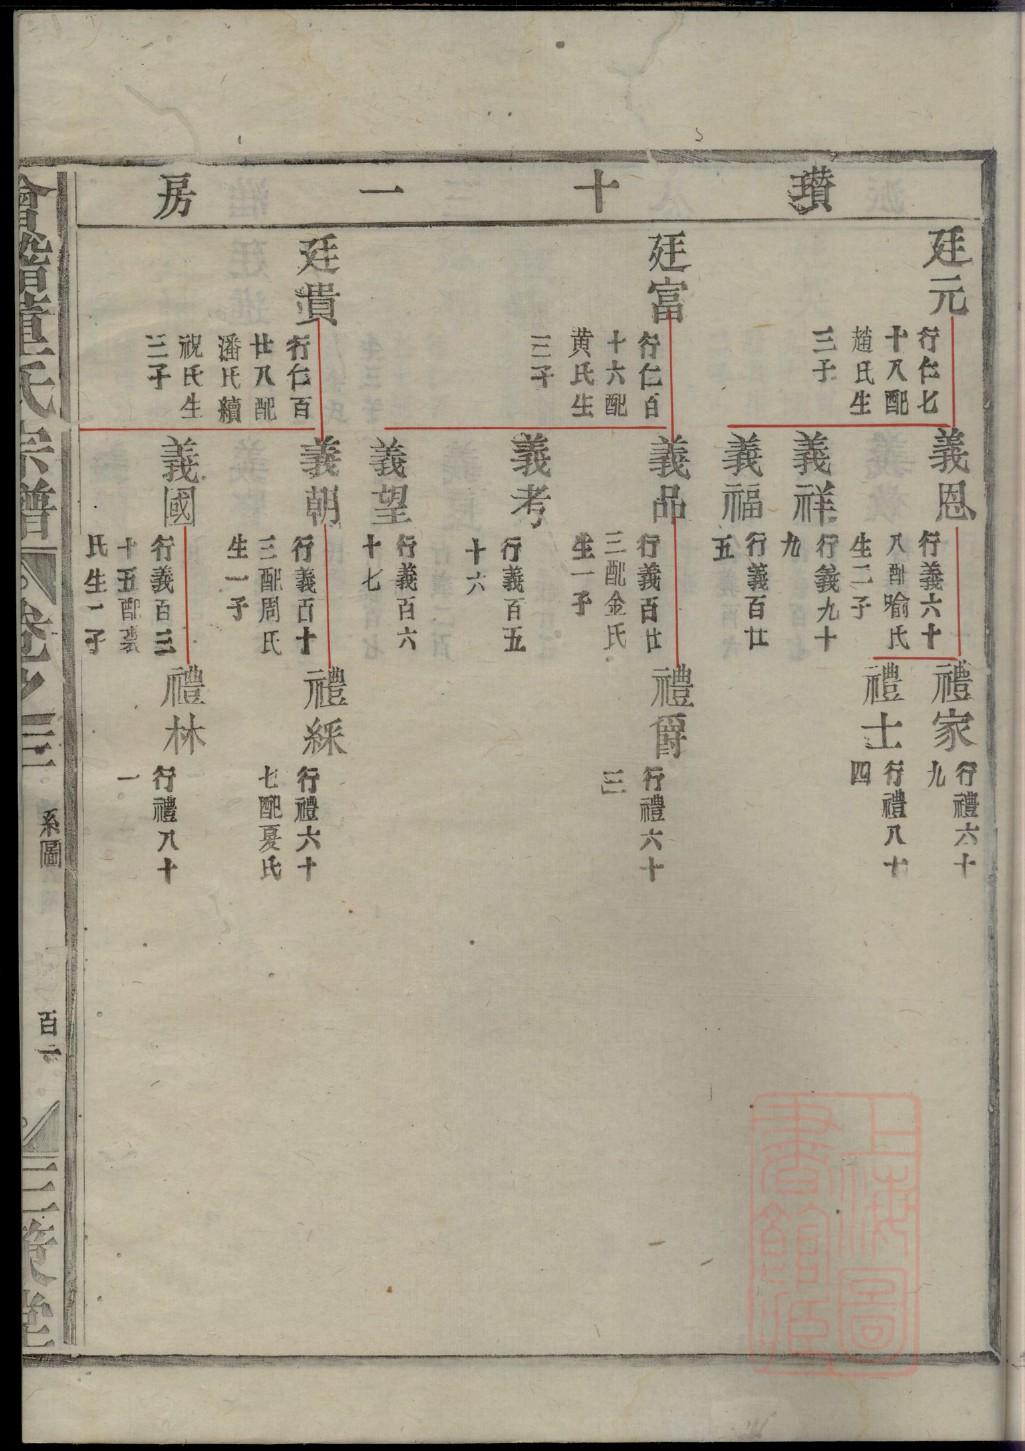 瓚十一房
廷元
行仁七
十八配
趙氏生
三子
廷富
行仁百
十六配
黄氏生
三子
廷貴
行仁百
廿八配
潘氏續
祝氏生
三子
義恩
行義六十
八配喻氏
生二子
義祥
行義九十
九
義福
行義百廿
五
義品
行義百廿
三配金氏
生一子
義考
行義百五
十六
義望
行義百六
十七
義朝
行義百十
三配周氏
生一子
義國
行義百三
十五配裘
氏生二子
禮家
行禮六十
九
禮士
行禮八十
四
禮爵
行禮六十
三
禮綵
行禮六十
七配夏氏
禮林
行禮八十
一
會稽董氏宗譜
卷之三
系圖
三策堂
上海圖
書館藏